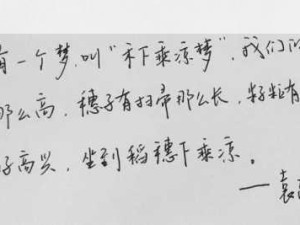 有一个梦,叫“禾下乘凉梦”,我们的
那么高,穗子有扫帚那么长,籽粒有
好高兴,坐到稻穗下乘凉。
——袁